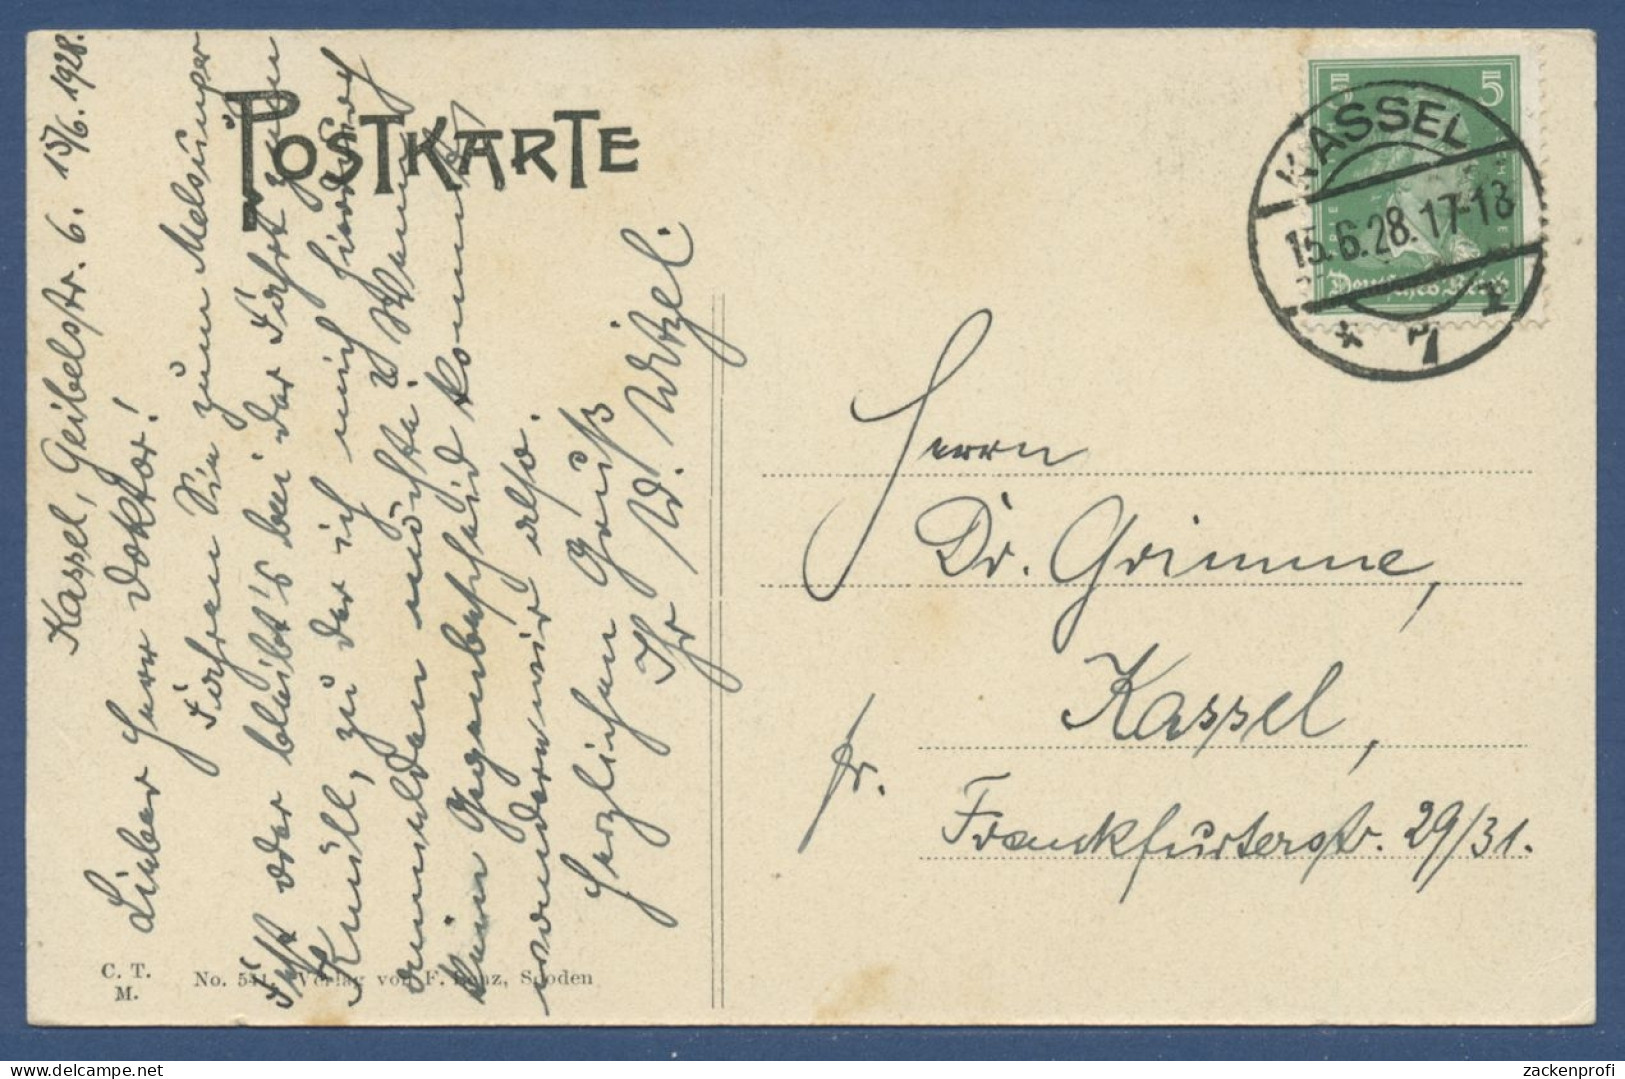 Kassel, Geibelstr. 6. 15/6. 1928.
Lieber Herr Doktor!
Fahren Sie zum Melsunger
Fest oder bleibt's bei der Fahrt zum
Knüll, zu der ich mich hierdurch
anmelden möchte? Wenn
kein Gegenbescheid kommt,
wandern wir also.
Herzlichen Gruß
Ihr W. Witzel.
POSTKARTE
C. T.
M.
No. 541. Verlag von F. Benz, Sooden
5 5
Deutsches Reich
KASSEL
15.6.28.17-18
* 7 r
Herrn
Dr. Grimme,
Kassel,
fr. Frankfurterstr. 29/31.
zackenprofi